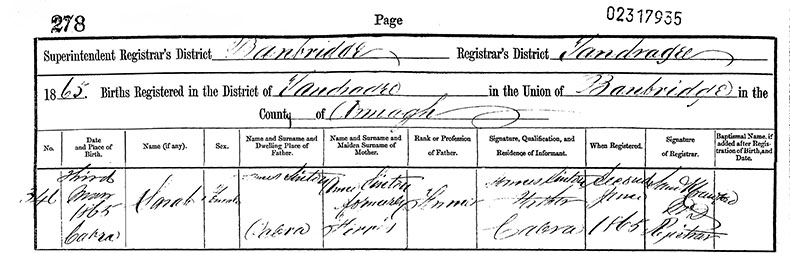 278 Page 02317935
Superintendent Registrar's District Banbridge Registrar's District Tandragee
1865. Births Registered in the District of Tandragee in the Union of Banbridge in the
County of Armagh
No. Date and Place of Birth. Name (if any). Sex. Name and Surname and Dwelling Place of Father. Name and Surname and Maiden Surname of Mother. Rank or Profession of Father. Signature, Qualification, and Residence of Informant. When Registered. Signature of Registrar. Baptismal Name, if added after Registration of Birth, and Date.
346 Third May 1865 Cabra Sarah Female Sinton Cabra Sinton formerly Farmer Sinton Father Cabra Second June 1865 Registrar